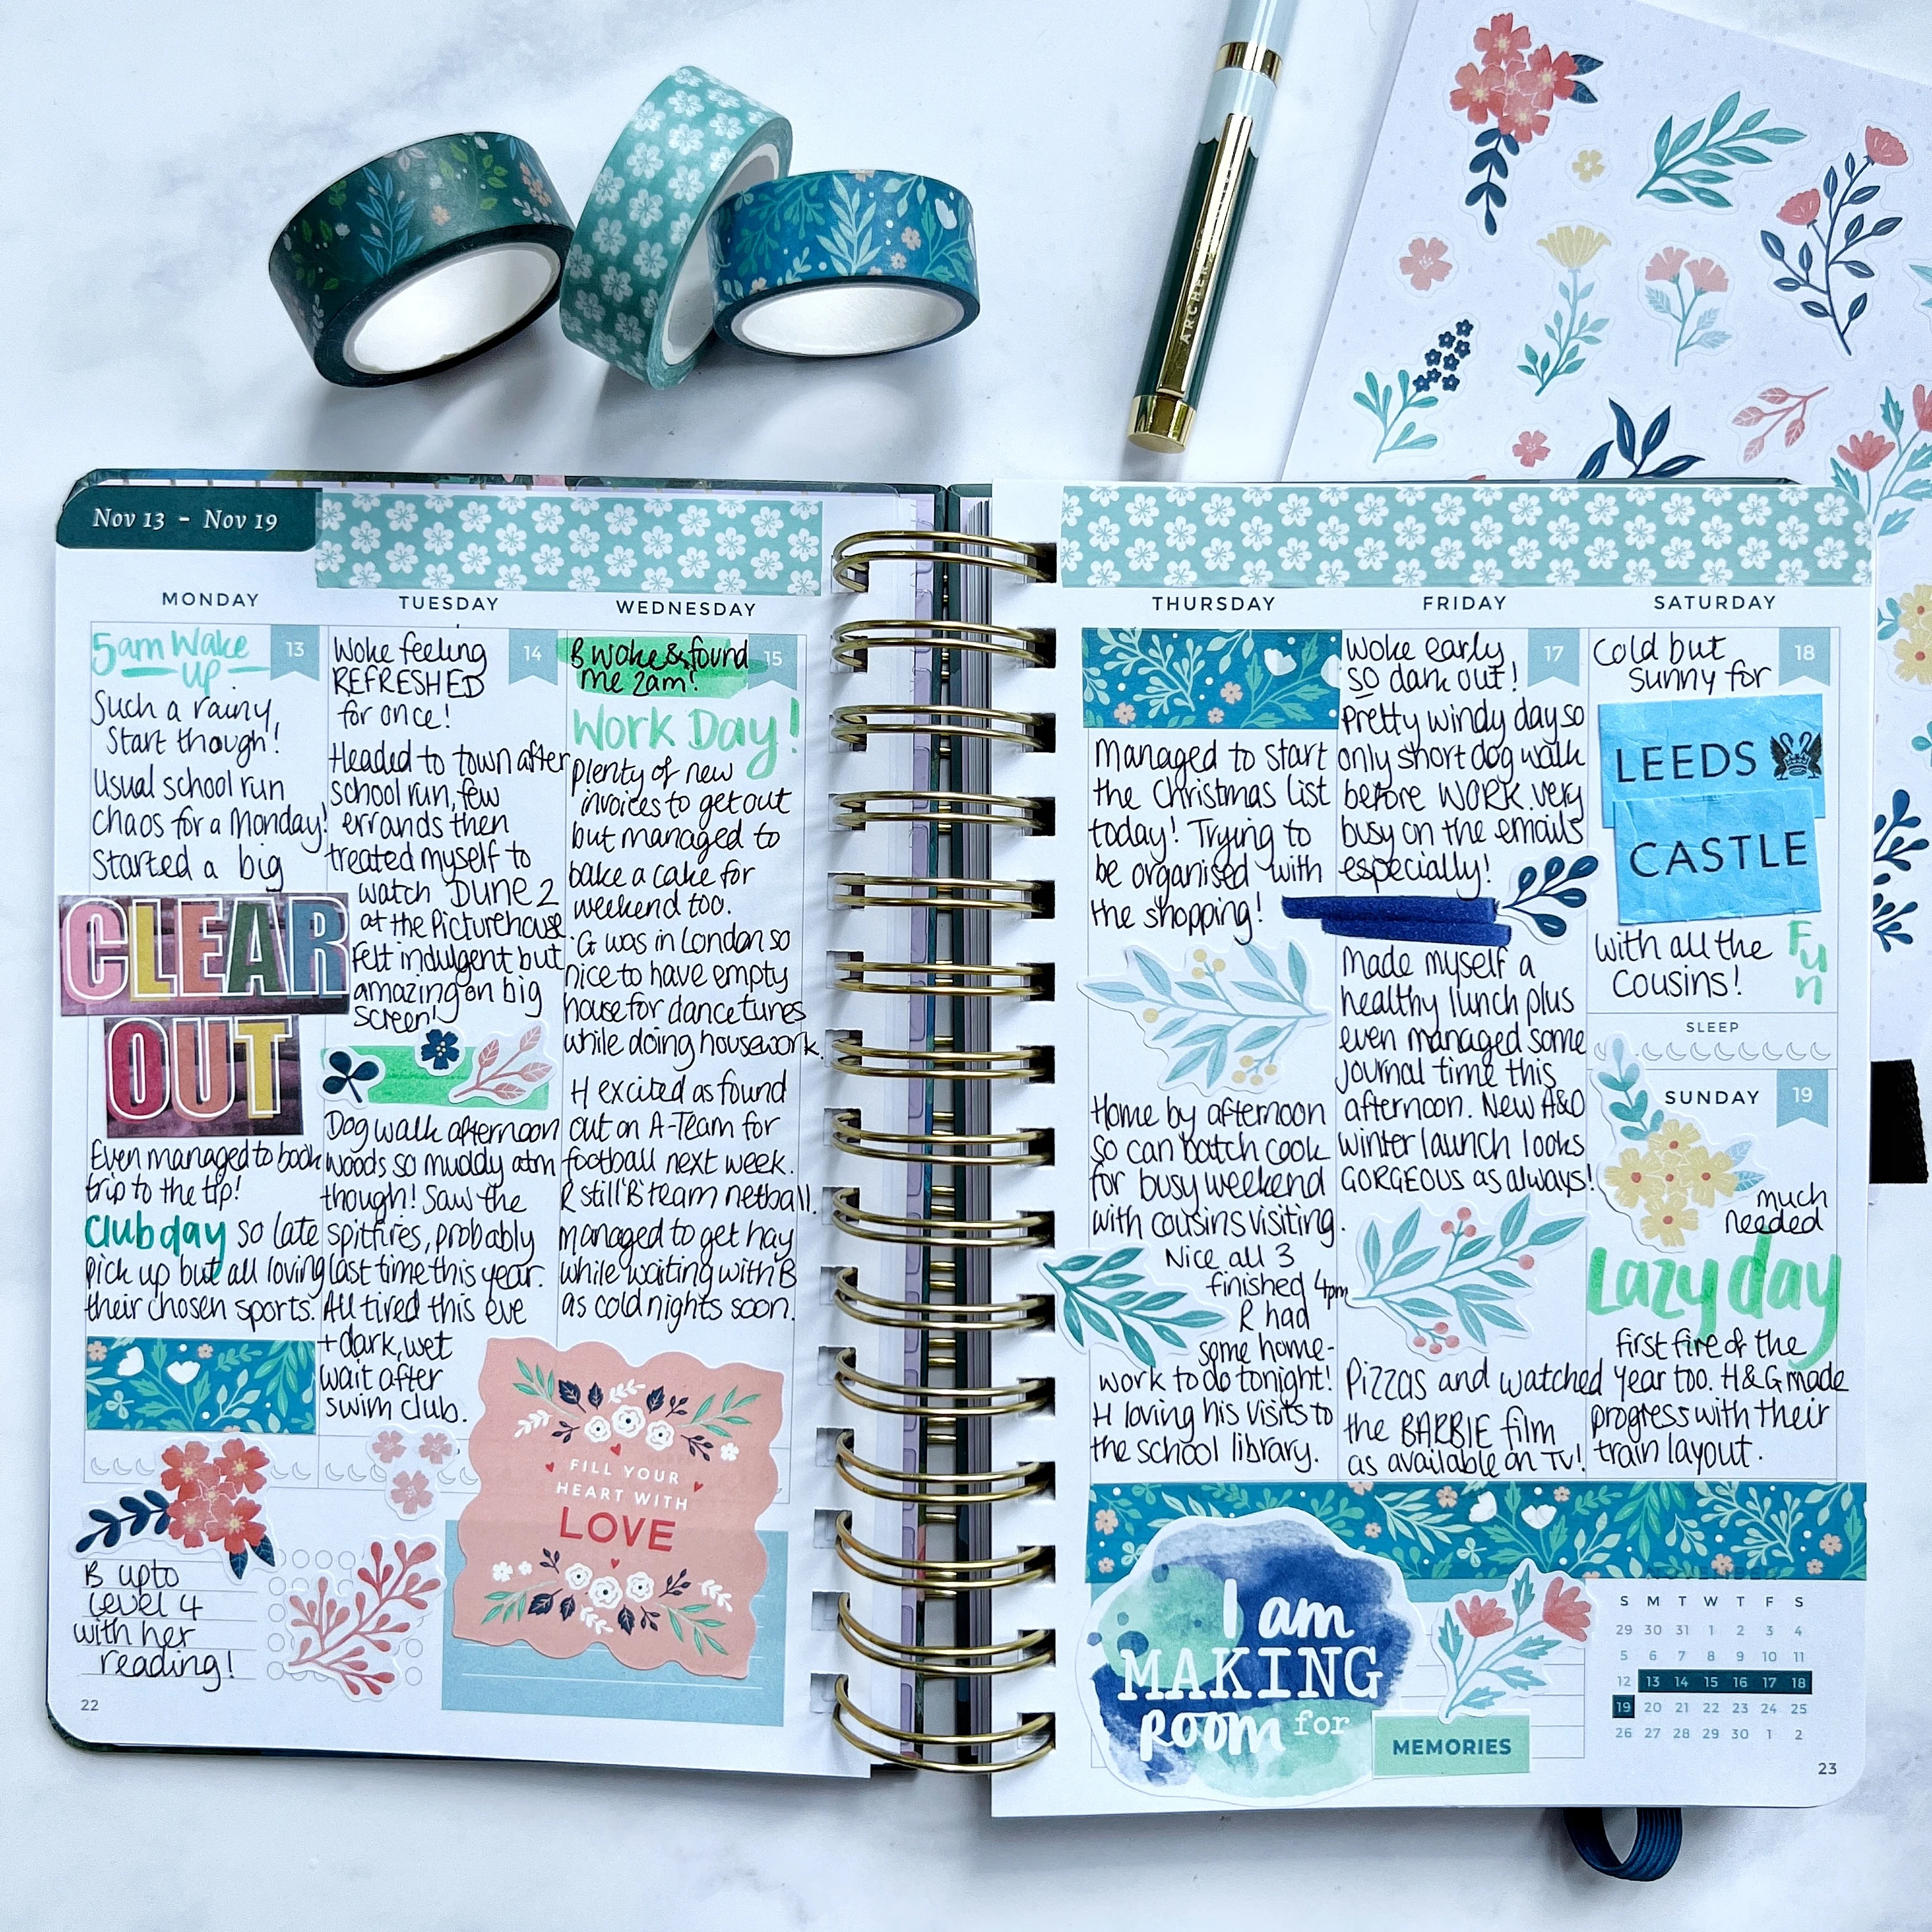 ARCHER
Nov 13 - Nov 19
MONDAY
13
5am Wake
Up
Such a rainy,
Start though!
Usual school run
chaos for a Monday!
Started a big
CLEAR
OUT
Even managed to book
trip to the tip!
Club day so late
pick up but all loving
their chosen sports.
TUESDAY
14
Woke feeling
REFRESHED
for once!
Headed to town after
school run, few
errands then
treated myself to
watch DUNE 2
at the Picturehouse.
Felt indulgent but
amazing on big
screen!
Dog walk afternoon
woods so muddy atm
though! Saw the
spitfires, probably
last time this year.
All tired this eve
+ dark, wet
wait after
swim club.
WEDNESDAY
15
B woke & found
me 2am!
Work Day!
plenty of new
invoices to get out
but managed to
bake a cake for
weekend too.
G was in London so
nice to have empty
house for dance tunes
while doing housework.
H excited as found
out on A-Team for
football next week.
R still 'B' team netball.
managed to get hay
while waiting with B
as cold nights soon.
FILL YOUR
HEART WITH
LOVE
B upto
level 4
with her
reading!
22
THURSDAY
Managed to start
the Christmas list
today! Trying to
be organised with
the shopping!
Home by afternoon
so can batch cook
for busy weekend
with cousins visiting.
Nice all 3
finished 4pm
R had
some home-
work to do tonight!
H loving his visits to
the school library.
FRIDAY
17
Woke early
so dark out!
Pretty windy day so
only short dog walk
before WORK. very
busy on the emails
especially!
Made myself a
healthy lunch plus
even managed some
journal time this
afternoon. New A&O
winter launch looks
GORGEOUS as always!
Pizzas and watched
the BARBIE film
as available on TV!
SATURDAY
18
Cold but
sunny for
LEEDS
CASTLE
with all the
Cousins!
Fun
SLEEP
SUNDAY
19
much
needed
Lazy day
first fire of the
year too. H&G made
progress with their
train layout.
I am
MAKING
Room for
MEMORIES
NOVEMBER
S M T W T F S
29 30 31 1 2 3 4
5 6 7 8 9 10 11
12 13 14 15 16 17 18
19 20 21 22 23 24 25
26 27 28 29 30 1 2
23